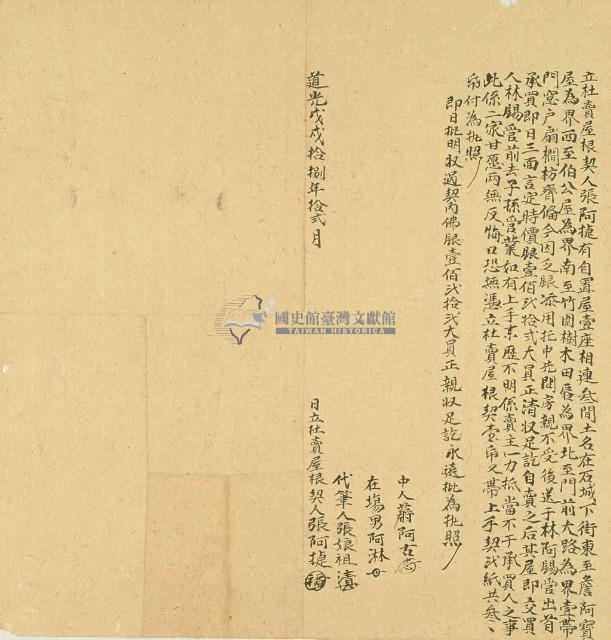 立杜賣屋根契人張阿捷有自置屋壹座相連叁間土名在石城下街東至詹阿寶
屋為界西至伯公屋為界南至竹圍樹木田唇為界北至門前大路為界壹帶
門窓户扇櫊枋齊偹今因乏銀添用托中先問房親不受後送于林阿賜官出首
承買即日三面言定時價銀壹佰弍拾弍大員正清收足訖自賣之后其屋即交買
人林賜官前去子孫管業如有上手來歷不明係賣主一力抵當不干承買人之事
此係二家甘愿兩無反悔口恐無憑立杜賣屋根契壹帋又帶上手契弍紙共叁
帋付為批照
即日批明收過契內佛銀壹佰弍拾弍大員正親收足訖永遠批為批照
中人蔣阿古
在塲男阿淋
代筆人張娘祖
道光戊戌拾捌年拾弍月 日立杜賣屋根契人張阿捷
國史館臺灣文獻館
TAIWAN HISTORICA